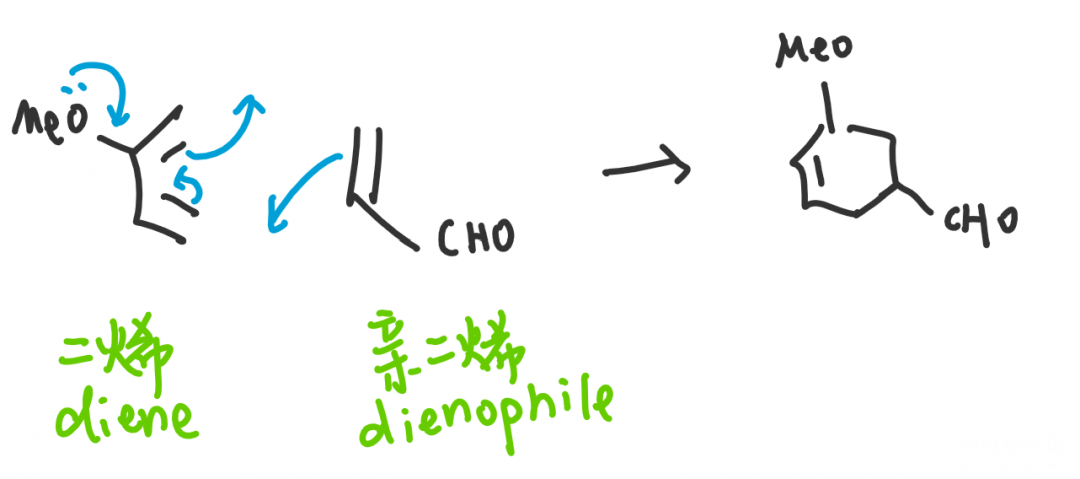 MeO
MeÖ
CHO
CHO
二烯
diene
亲二烯
dienophile